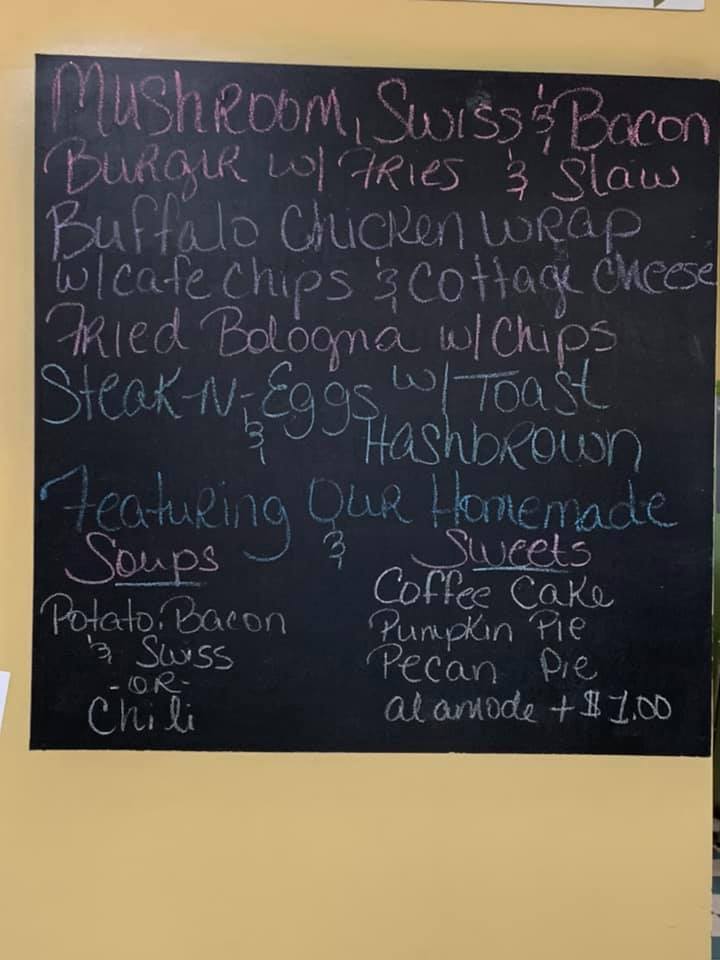 Mushroom, Swiss & Bacon
Burger w/ Fries & Slaw
Buffalo Chicken Wrap
w/ cafe chips & cottage cheese
Fried Bologna w/ Chips
Steak-N-Eggs w/ Toast
& Hashbrown
Featuring Our Homemade
Soups & Sweets
Potato, Bacon
& Swiss
-OR-
Chili
Coffee Cake
Pumpkin Pie
Pecan Pie
alamode + $1.00